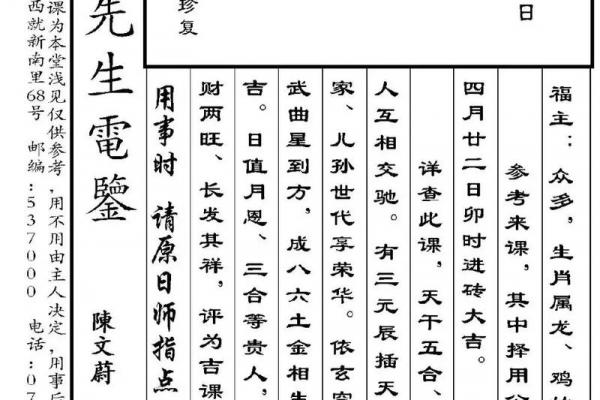 日
珍复
福主：众多，生肖属龙、鸡
参考来课，其中择用公
四月廿二日卯时进砖大吉。
详查此课，天干五合、
人互相交驰。有三元辰插天
家、儿孙世代享荣华。依玄空
武曲星到方，成八六土金相生
吉。日值月恩、三合等贵人，
财两旺、长发其祥，评为吉课
用事时 请原日师指点
先生電鑒 陳文蔚
课为本堂浅见仅供参考，用不用由主人决定，用事后
西就新南里68号 邮编：537000 电话：07